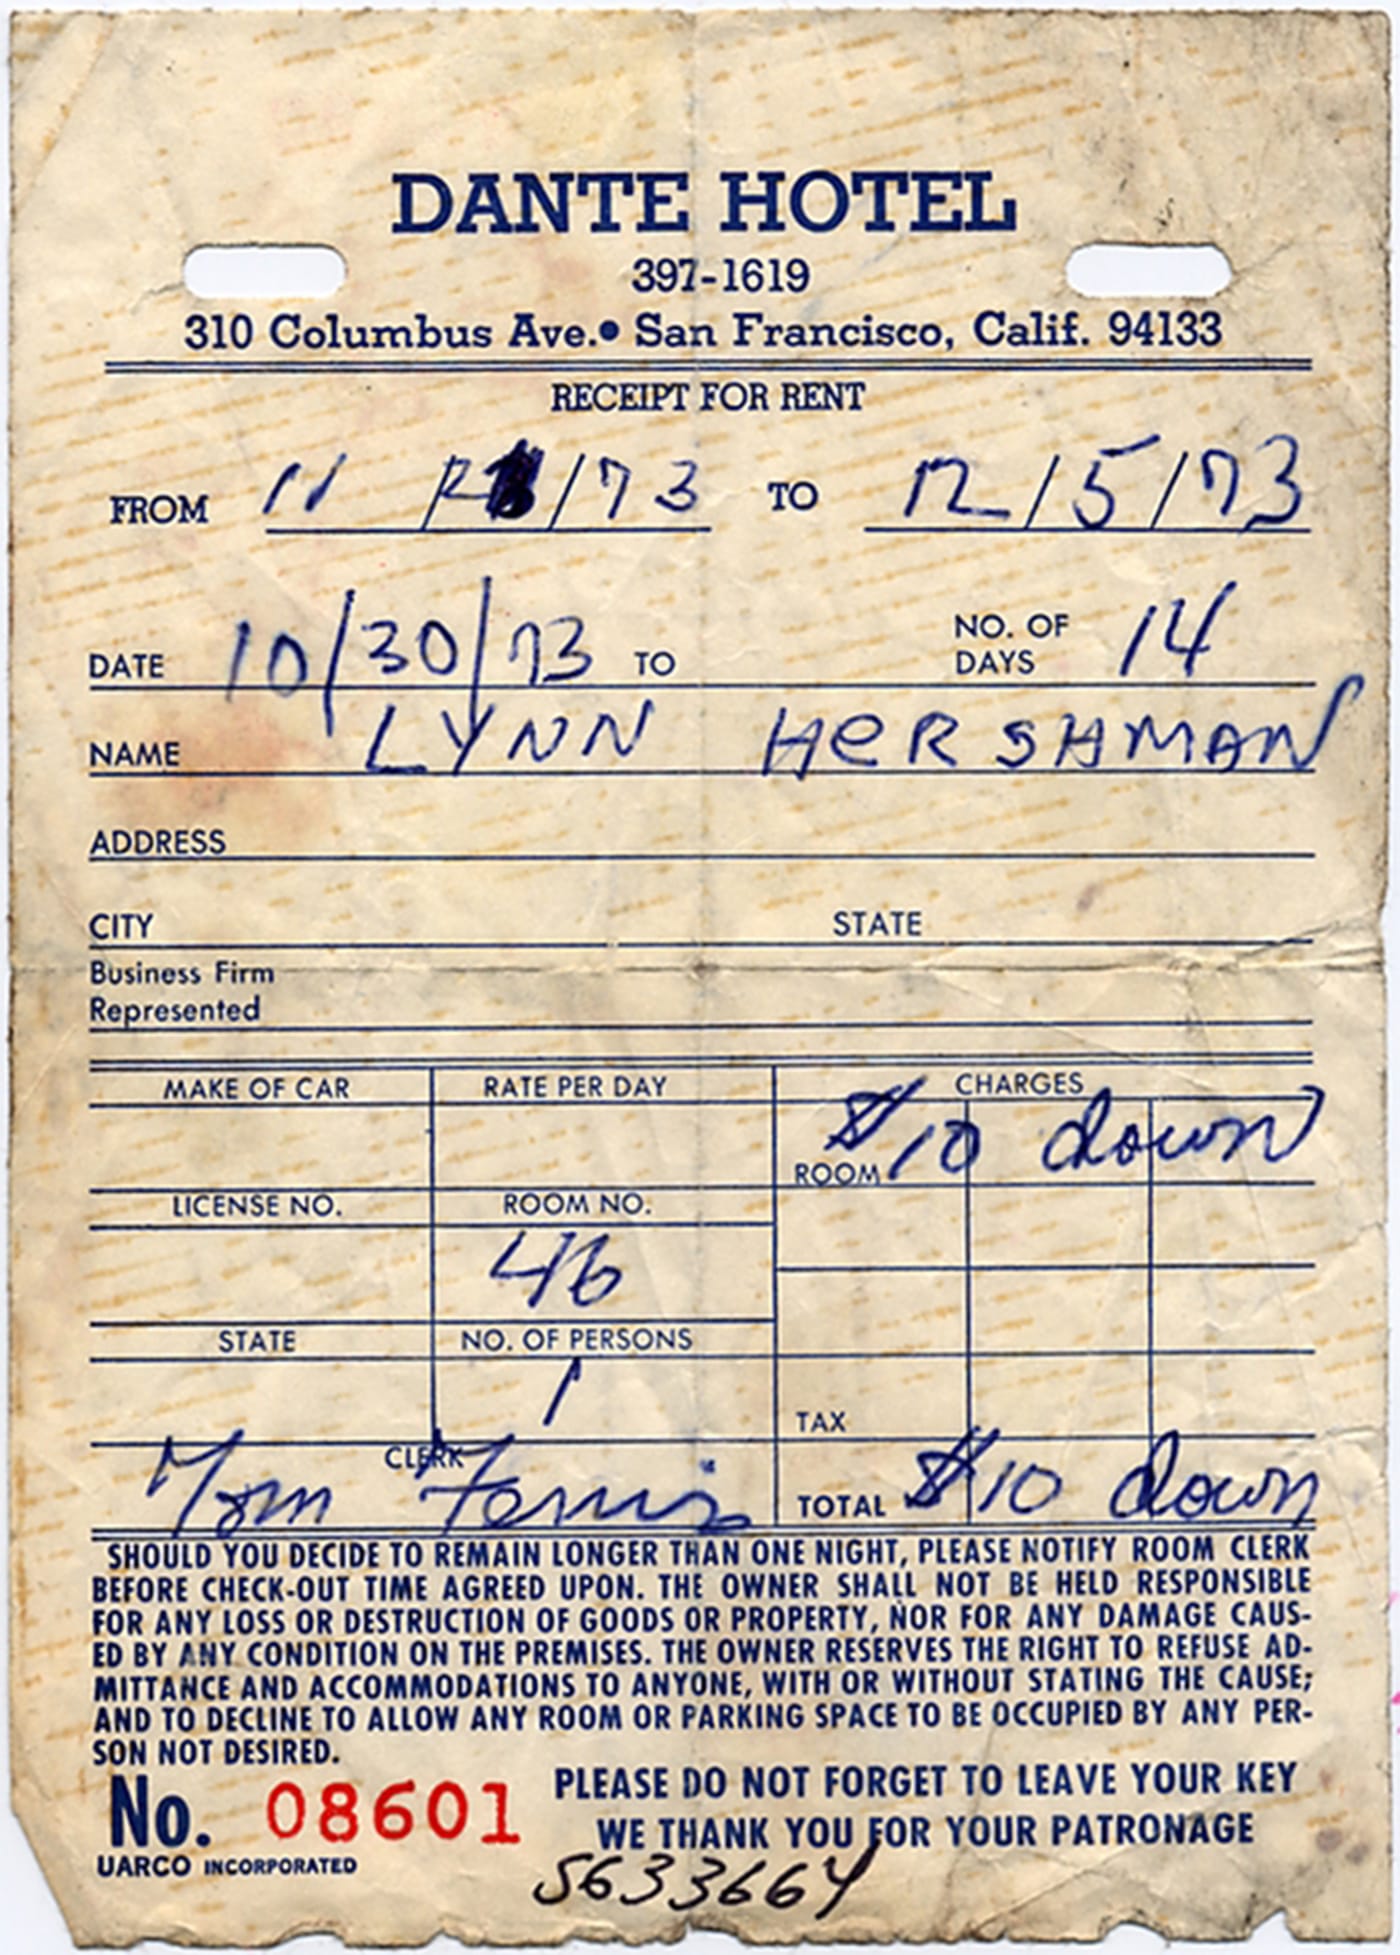 DANTE HOTEL
397-1619
310 Columbus Ave.• San Francisco, Calif. 94133
RECEIPT FOR RENT
FROM 11 / /73 TO 12/5/73
DATE 10/30/73 TO NO. OF DAYS 14
NAME LYNN HeRSHMAN
ADDRESS
CITY STATE
Business Firm
Represented
MAKE OF CAR RATE PER DAY CHARGES
ROOM $10 down
LICENSE NO. ROOM NO.
46
STATE NO. OF PERSONS
1
TAX
CLERK
Tom Ferris TOTAL $10 down
SHOULD YOU DECIDE TO REMAIN LONGER THAN ONE NIGHT, PLEASE NOTIFY ROOM CLERK
BEFORE CHECK-OUT TIME AGREED UPON. THE OWNER SHALL NOT BE HELD RESPONSIBLE
FOR ANY LOSS OR DESTRUCTION OF GOODS OR PROPERTY, NOR FOR ANY DAMAGE CAUS-
ED BY ANY CONDITION ON THE PREMISES. THE OWNER RESERVES THE RIGHT TO REFUSE AD-
MITTANCE AND ACCOMMODATIONS TO ANYONE, WITH OR WITHOUT STATING THE CAUSE;
AND TO DECLINE TO ALLOW ANY ROOM OR PARKING SPACE TO BE OCCUPIED BY ANY PER-
SON NOT DESIRED.
No. 08601 PLEASE DO NOT FORGET TO LEAVE YOUR KEY
WE THANK YOU FOR YOUR PATRONAGE
UARCO INCORPORATED
5633664